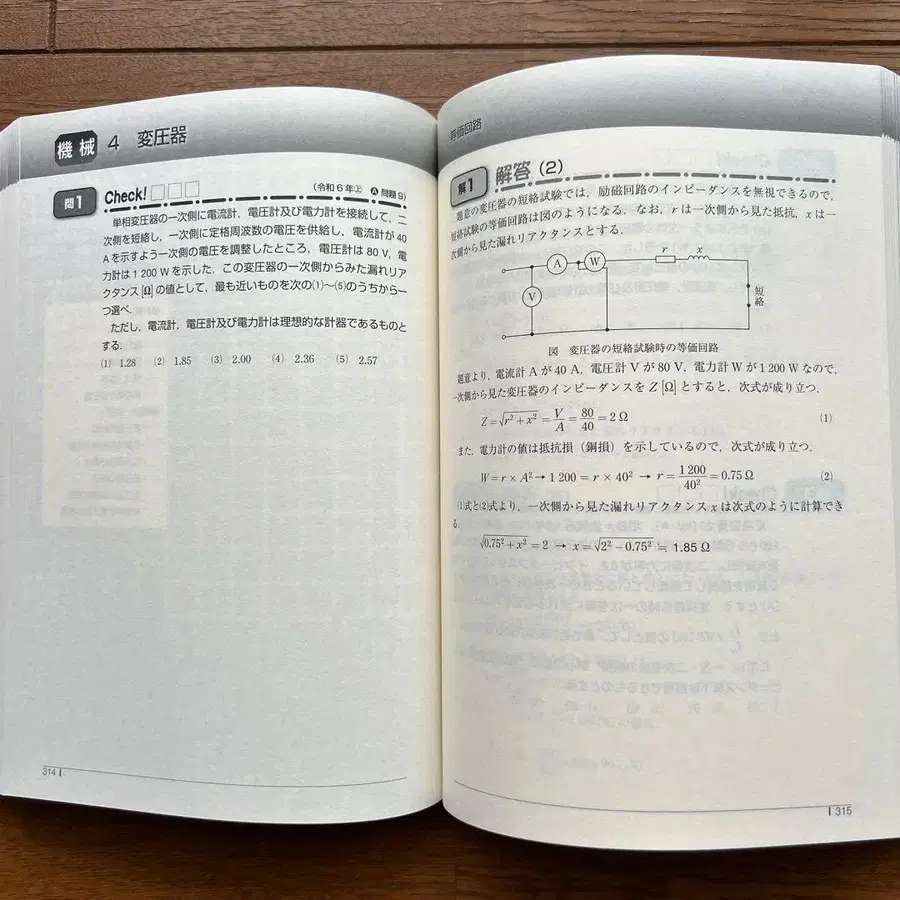 機械 4 変圧器
問1 Check! □□□ (令和6年㊤ Ⓐ問題9)
単相変圧器の一次側に電流計,電圧計及び電力計を接続して,二
次側を短絡し,一次側に定格周波数の電圧を供給し,電流計が40
Aを示すよう一次側の電圧を調整したところ,電圧計は80 V,電
力計は1 200 Wを示した.この変圧器の一次側からみた漏れリア
クタンス[Ω]の値として,最も近いものを次の⑴〜⑸のうちから一
つ選べ.
ただし,電流計,電圧計及び電力計は理想的な計器であるものと
する.
⑴ 1.28 ⑵ 1.85 ⑶ 2.00 ⑷ 2.36 ⑸ 2.57
314
等価回路
解1 解答 (2)
題意の変圧器の短絡試験では,励磁回路のインピーダンスを無視できるので,
短絡試験の等価回路は図のようになる.なお,rは一次側から見た抵抗,xは一
次側から見た漏れリアクタンスとする.
A W r x
V
短絡
図 変圧器の短絡試験時の等価回路
題意より,電流計Aが40 A,電圧計Vが80 V,電力計Wが1 200 Wなので,
一次側から見た変圧器のインピーダンスをZ[Ω]とすると,次式が成り立つ.
Z=√(r²+x²)=V/A=80/40=2 Ω (1)
また,電力計の値は抵抗損(銅損)を示しているので,次式が成り立つ.
W=r×A²→1 200=r×40²→r=1 200/40²=0.75 Ω (2)
⑴式と⑵式より,一次側から見た漏れリアクタンスxは次式のように計算でき
る.
√(0.75²+x²)=2 → x=√(2²−0.75²)≒1.85 Ω
315